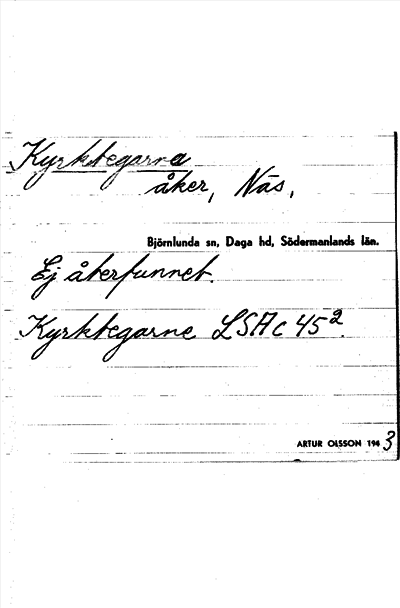 Kyrktegarna
åker, Näs,
Björnlunda sn, Daga hd, Södermanlands län.
Ej återfunnet.
Kyrktegarne LSA C 45².
ARTUR OLSSON 1943